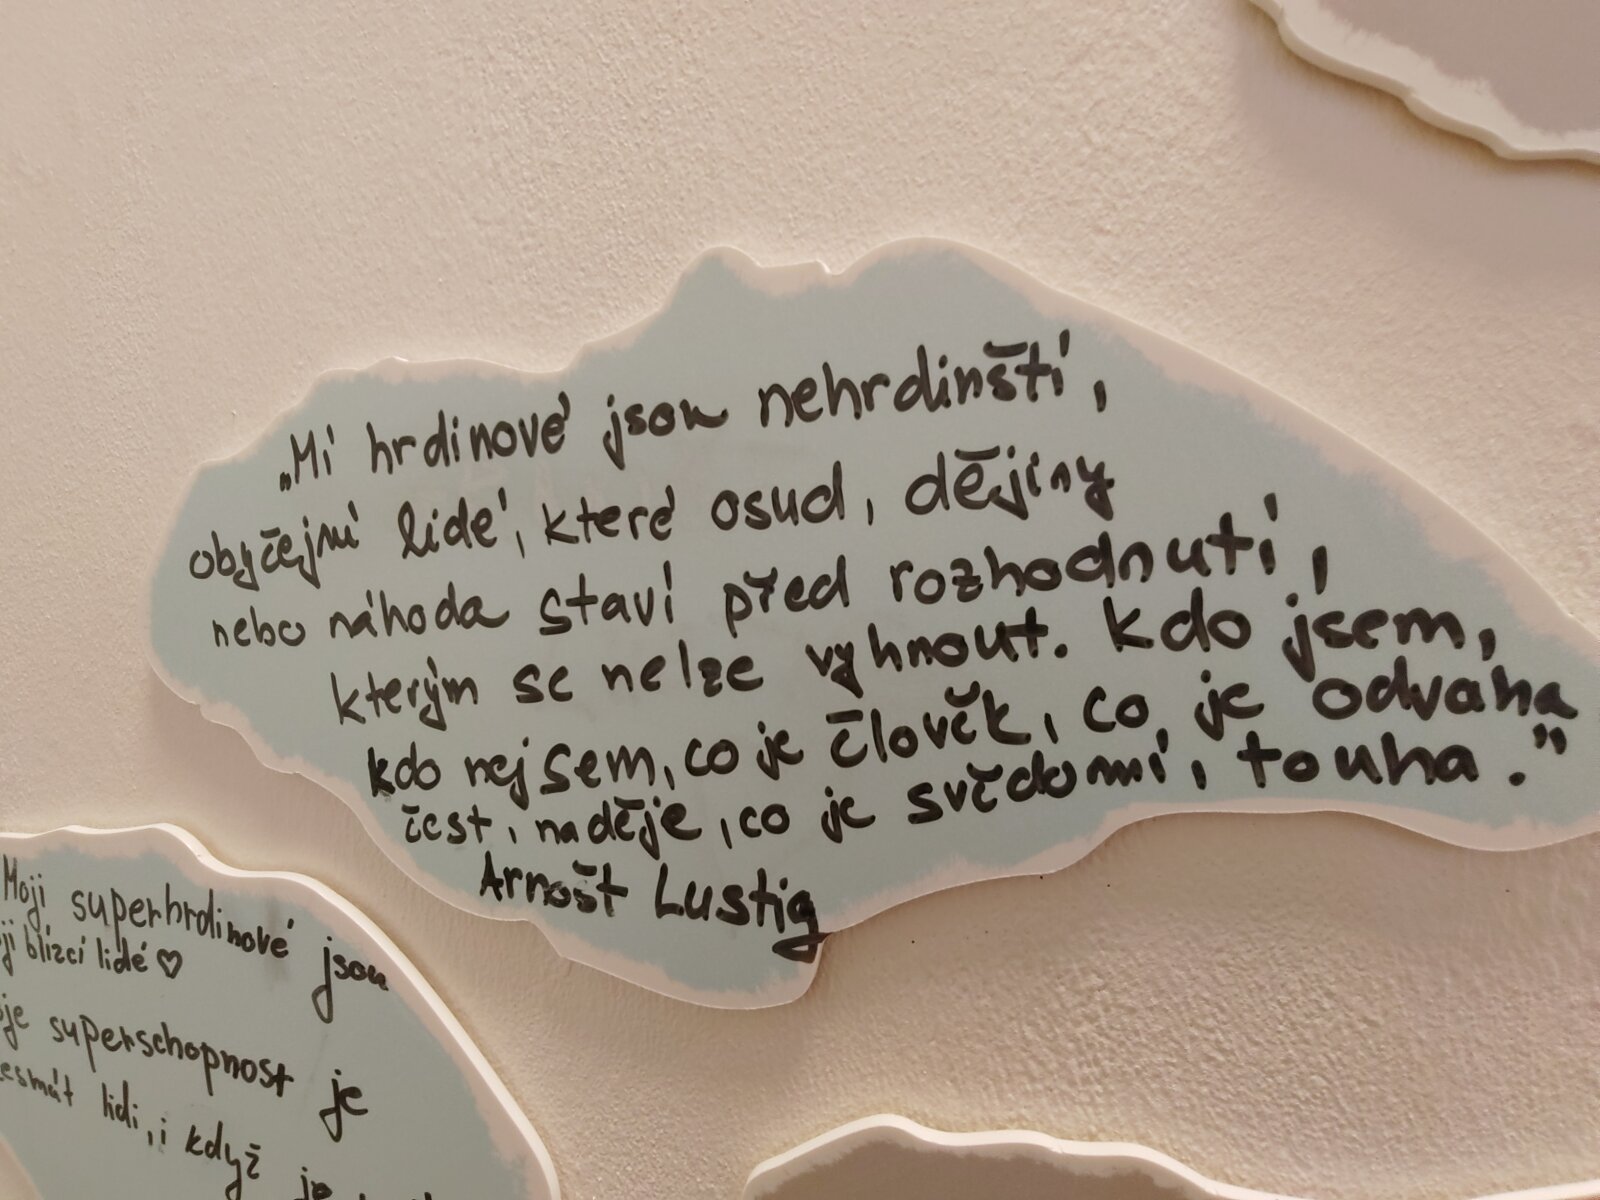 „Mí hrdinové jsou nehrdinští,
obyčejní lidé, které osud, dějiny
nebo náhoda staví před rozhodnutí,
kterým se nelze vyhnout. Kdo jsem,
kdo nejsem, co je člověk, co je odvaha
čest, naděje, co je svědomí, touha."
Arnošt Lustig
Moji superhrdinové jsou
blízcí lidé ♡
superschopnost je
lidi, i když
je